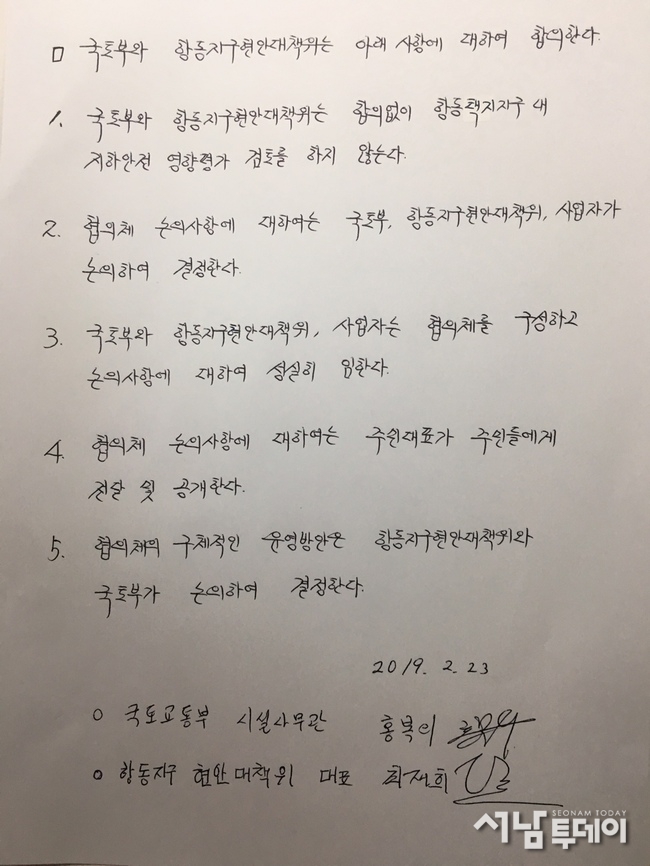 □ 국토부와 항동지구현안대책위는 아래 사항에 대하여 합의한다.
1. 국토부와 항동지구현안대책위는 합의없이 항동택지지구 내
지하안전 영향평가 검토를 하지 않는다.
2. 협의체 논의사항에 대하여는 국토부, 항동지구현안대책위, 사업자가
논의하여 결정한다.
3. 국토부와 항동지구현안대책위, 사업자는 협의체를 구성하고
논의사항에 대하여 성실히 임한다.
4. 협의체 논의사항에 대하여는 주민대표가 주민들에게
전달 및 공개한다.
5. 협의체의 구체적인 운영방안은 항동지구현안대책위와
국토부가 논의하여 결정한다.
2019. 2. 23
○ 국토교통부 시설사무관 홍복의
○ 항동지구 현안대책위 대표 최재희
SEONAM TODAY
서남투데이